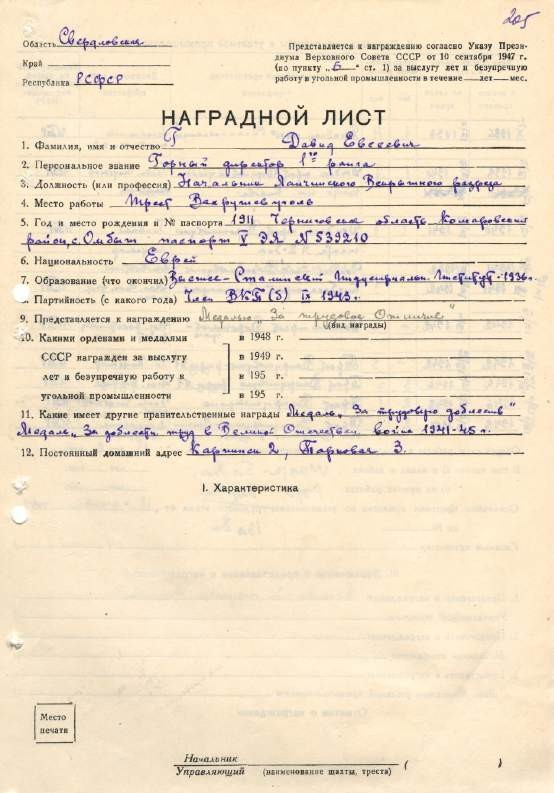 205
Область Свердловская
Край
Республика РСФСР
Представляется к награждению согласно Указу Прези-
диума Верховного Совета СССР от 10 сентября 1947 г.
(по пункту „Б“ ст. 1) за выслугу лет и безупречную
работу в угольной промышленности в течение — лет — мес.
НАГРАДНОЙ ЛИСТ
1. Фамилия, имя и отчество Г Давид Евсеевич
2. Персональное звание Горный директор 1го ранга
3. Должность (или профессия) Начальник Вскрышного разреза
4. Место работы Трест Вахрушевуголь
5. Год и место рождения и № паспорта 1911 Черниговск область, Комаровский
район, с. паспорт № 539210
6. Национальность Еврей
7. Образование (что окончил) Высшее - Сталинский Индустриальн. Институт - 1936г.
8. Партийность (с какого года) Член ВКП(б) IX 1943г.
9. Представляется к награждению Медалью „За трудовое Отличие"
(вид награды)
10. Какими орденами и медалями
СССР награжден за выслугу
лет и безупречную работу в
угольной промышленности
в 1948 г.
в 1949 г.
в 195 г.
в 195 г.
11. Какие имеет другие правительственные награды Медаль „За трудовую доблесть"
Медаль „За доблестн. труд в Великой Отечествен. войне 1941-45 г.
12. Постоянный домашний адрес Карпинск 2, Парковая 3.
I. Характеристика
Место
печати
Начальник
Управляющий
(наименование шахты, треста)
( )